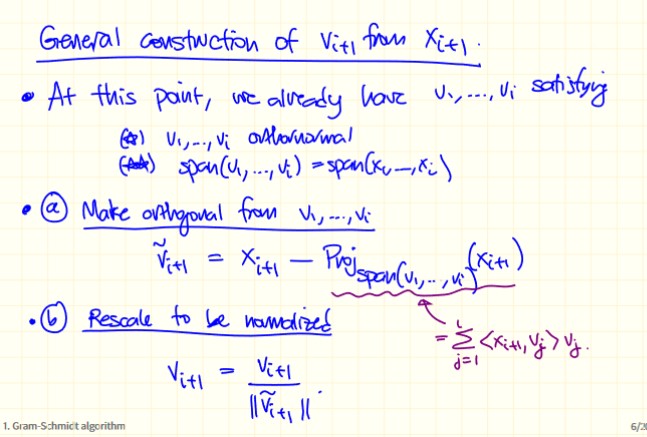 General construction of v_{i+1} from x_{i+1}.
• At this point, we already have v_1, ..., v_i satisfying
(☆) v_1, ..., v_i orthonormal
(☆☆) span(v_1, ..., v_i) = span(x_1, ..., x_i)
• ⓐ Make orthogonal from v_1, ..., v_i
ṽ_{i+1} = x_{i+1} − Proj_{span(v_1, ..., v_i)}(x_{i+1})
= ∑_{j=1}^{i} ⟨x_{i+1}, v_j⟩ v_j.
• ⓑ Rescale to be normalized
v_{i+1} = v_{i+1} / ||ṽ_{i+1}||.
1. Gram-Schmidt algorithm
6/20